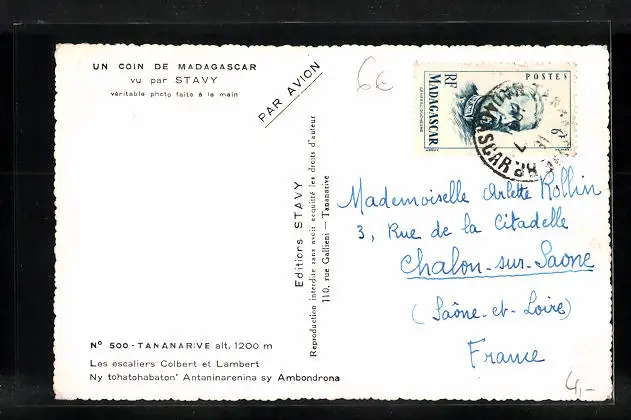 UN COIN DE MADAGASCAR
vu par STAVY
véritable photo faite à la main
PAR AVION
6€
POSTES
RF
MADAGASCAR
GÉNÉRAL DUCHESNE
Editions STAVY
Reproduction interdite sans avoir acquitté les droits d'auteur
110, rue Gallieni — Tananarive
Mademoiselle Arlette Rollin
3, Rue de la Citadelle
Chalon-sur-Saone
(Saône-et-Loire)
France
N° 500 - TANANARIVE alt. 1200 m
Les escaliers Colbert et Lambert
Ny tohatohabaton' Antaninarenina sy Ambondrona
4,-